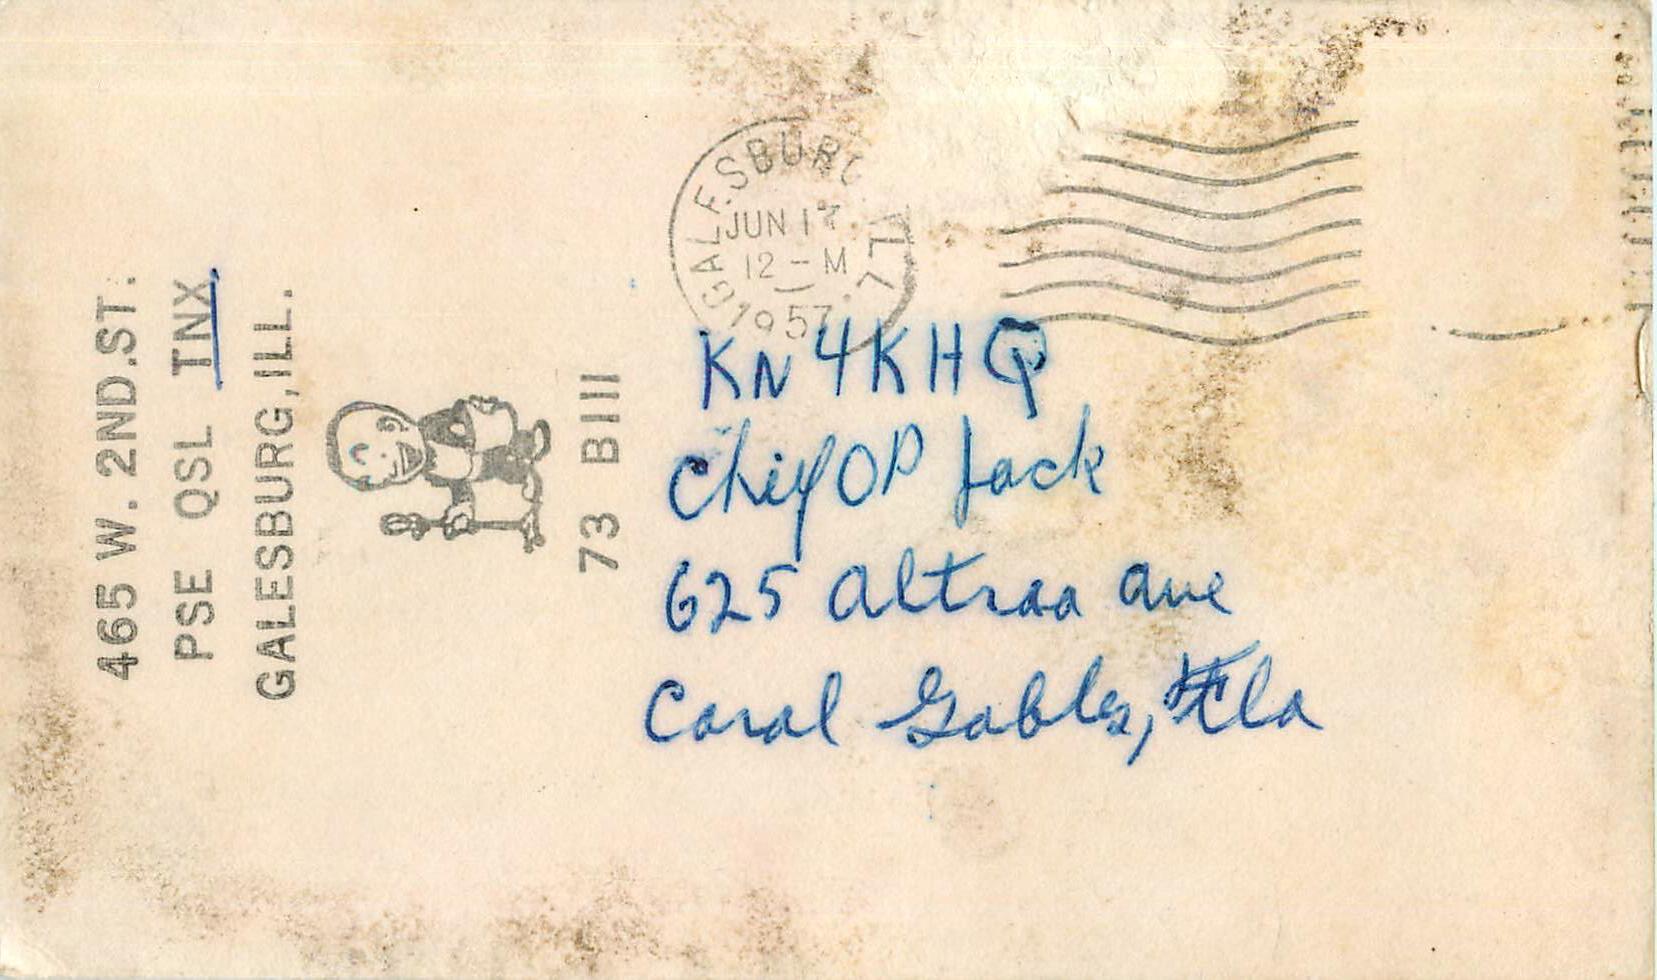 465 W. 2ND.ST.
PSE QSL TNX
GALESBURG,ILL.
73 BIll
GALESBURG ILL.
JUN 17
12 - M
1957
KN4KHQ
Chief OP Jack
625 Altraa Ave
Coral Gables, Fla